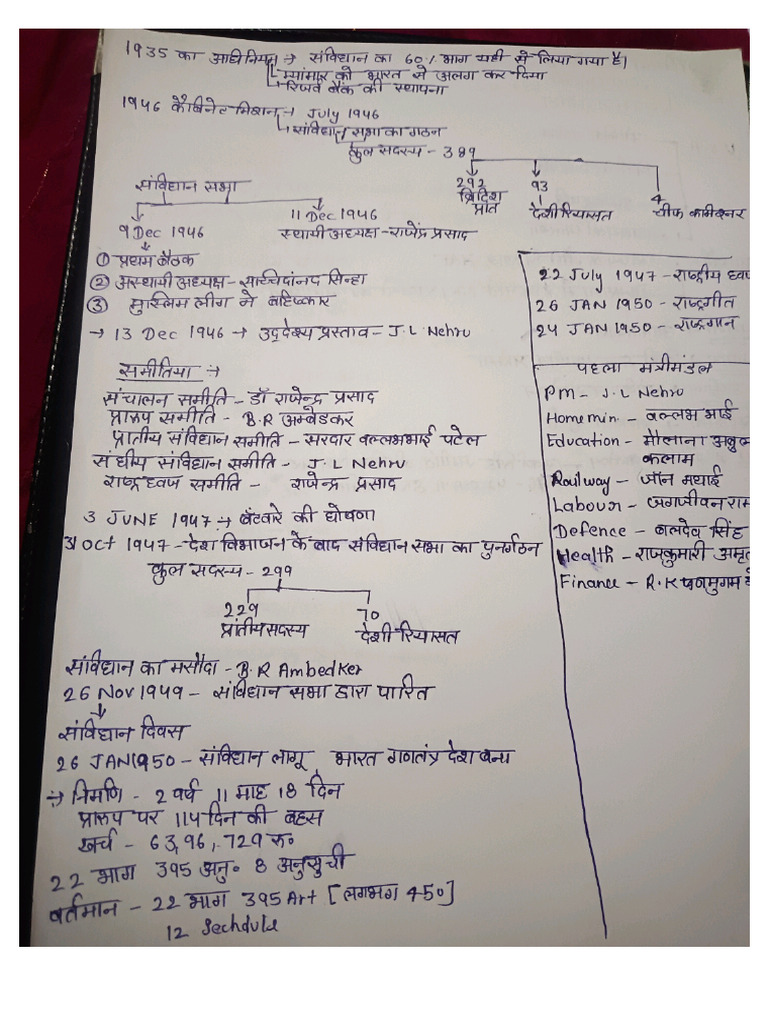 1935 का अधिनियम → संविधान का 60% भाग यही से लिया गया है।
म्यांमार को भारत से अलग कर दिया
रिजर्व बैंक की स्थापना
1946 कैबिनेट मिशन → July 1946
संविधान सभा का गठन
कुल सदस्य - 389
292 ब्रिटिश प्रांत
93 देशी रियासत
4 चीफ कमिश्नर
संविधान सभा
9 Dec 1946
11 Dec 1946
स्थायी अध्यक्ष - राजेंद्र प्रसाद
① प्रथम बैठक
② अस्थायी अध्यक्ष - सच्चिदांनद सिन्हा
③ मुस्लिम लीग ने बहिष्कार
→ 13 Dec 1946 → उद्देश्य प्रस्ताव - J.L Nehru
समीतिया :→
संचालन समीति - डॉ राजेन्द्र प्रसाद
प्रारूप समीति - B.R अम्बेडकर
प्रातीय संविधान समीति - सरदार वल्लभभाई पटेल
संघीय संविधान समीति - J.L Nehru
राष्ट्रध्वज समीति - राजेन्द्र प्रसाद
3 JUNE 1947 → बँटवारे की घोषणा
31 OCT 1947 - देश विभाजन के बाद संविधान सभा का पुनर्गठन
कुल सदस्य - 299
229 प्रांतीय सदस्य
70 देशी रियासत
संविधान का मसौदा - B.R Ambedker
26 Nov 1949 - संविधान सभा द्वारा पारित
संविधान दिवस
26 JAN 1950 - संविधान लागू भारत गणतंत्र देश बना
→ निर्माण - 2 वर्ष 11 माह 18 दिन
प्रारूप पर 114 दिन की बहस
खर्च - 63,96,729 रु०
22 भाग 395 अनु० 8 अनुसुची
वर्तमान - 22 भाग 395 Art [लगभग 450]
12 Sechdule
22 July 1947 - राष्ट्रीय ध्वज
26 JAN 1950 - राष्ट्रगीत
24 JAN 1950 - राष्ट्रगान
पहला मंत्रीमंडल
PM - J.L Nehru
Home min. - वल्लभ भाई
Education - मौलाना अबुल
कलाम
Railway - जॉन मथाई
Labour - जगजीवन राम
Defence - बलदेव सिंह
Health - राजकुमारी अमृत
Finance - R.K षणमुगम